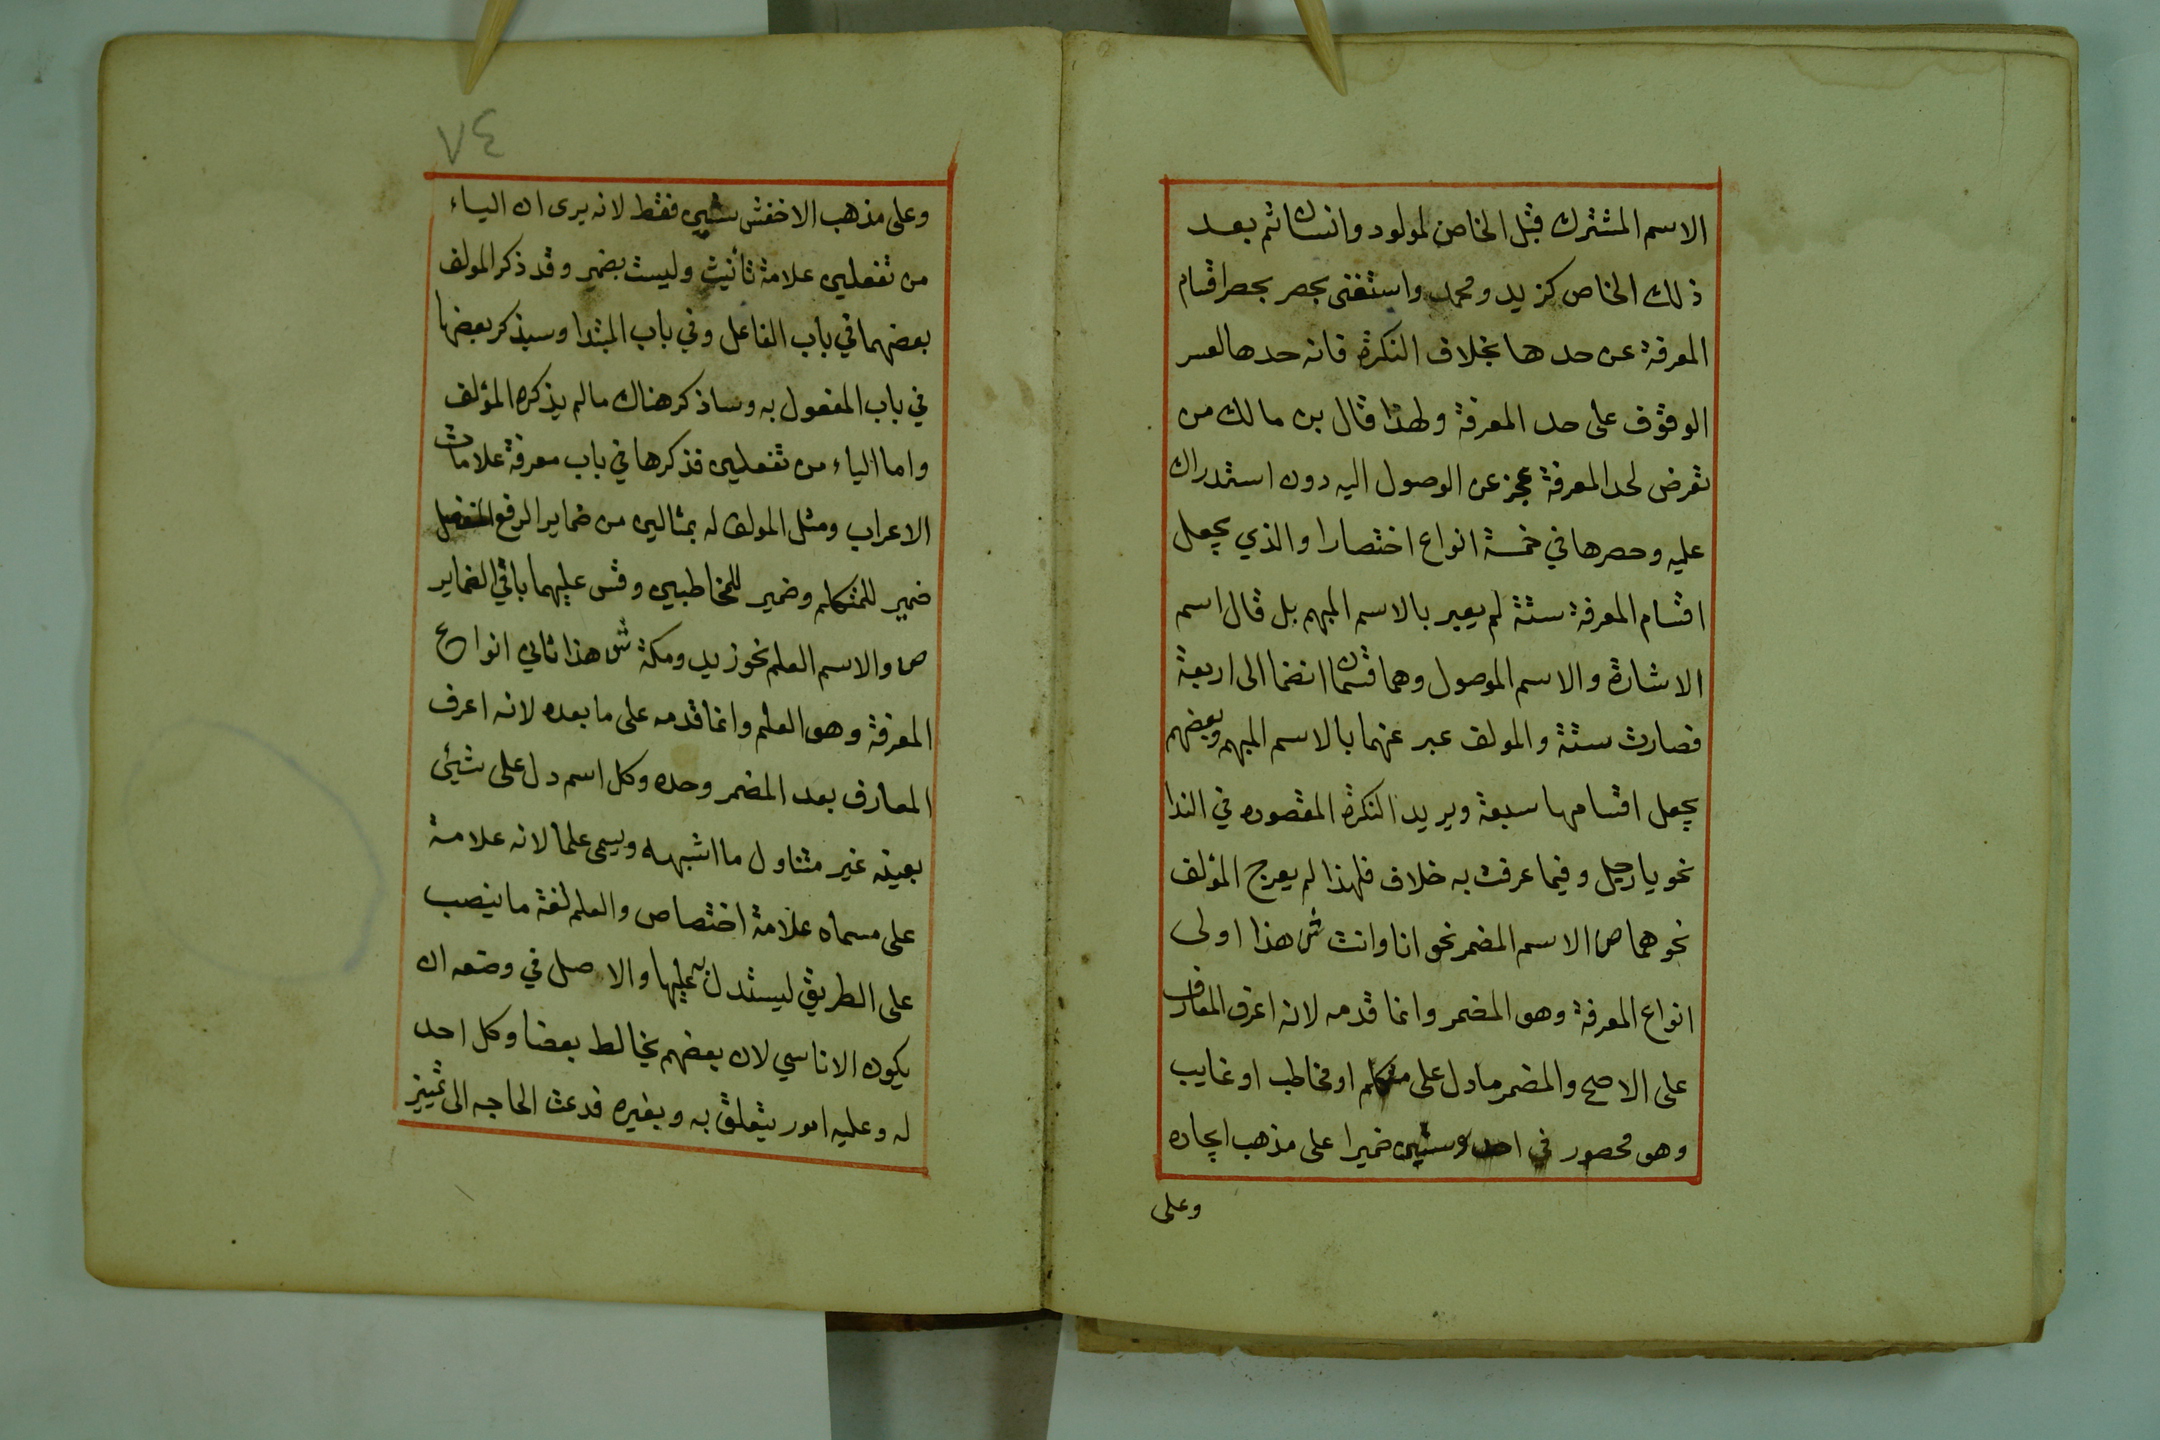 الاسم المشترك قبل الخاص لمولود وانسان ثم بعد
ذلك الخاص كزيد ومحمد واستغنى بحصر بحصر اقسام
المعرفة عن حدها بخلاف النكرة فانه حدها لعسر
الوقوف على حد المعرفة ولهذا قال بن مالك من
تعرض لحد المعرفة عجز عن الوصول اليه دون استدراك
عليه وحصرها في خمسة انواع اختصارا والذي يجعل
اقسام المعرفة ستة لم يعبر بالاسم المبهم بل قال اسم
الاشارة والاسم الموصول وهما قسمان انضما الى اربعة
فصارت ستة والمولف عبر عنهما بالاسم المبهم وبعضهم
يجعل اقسامها سبعة ويريد النكرة المقصوده في الندا
نحو يا رجل وفيما عرفت به خلاف فلهذا لم يعرج المؤلف
نحوهما ص الاسم المضمر نحو انا وانت ش هذا اولى
انواع المعرفة وهو المضمر وانما قدمه لانه اعرف المعارف
على الاصح والمضمر مادل على متكلم او مخاطب او غايب
وهو محصور في احد وستين ضميرا على مذهب
وعلى
٧٤
وعلى مذهب الاخفش ستين فقط لانه يرى ان الياء
من تفعلين علامة تأنيث وليست بضمير وقد ذكر المولف
بعضهما في باب الفاعل وفي باب المبتدا وسيذكر بعضها
في باب المفعول به وساذكر هناك مالم يذكره المؤلف
واما الياء من تفعلين فذكرها في باب معرفة علامات
الاعراب ومثل المولف له بمثالين من ضماير الرفع المنفصل
ضمير للمتكلم وضمير للمخاطبين وقس عليهما باقي الضماير
ص والاسم العلم نحو زيد ومكة ش هذا ثاني انواع
المعرفة وهو العلم وانما قدمه على ما بعده لانه اعرف
المعارف بعد المضمر وحده وكل اسم دل على شيئ
بعينه غير متناول ما اشبهه ويسمى علما لانه علامة
على مسماه علامة اختصاص والعلم لغة ما ينصب
على الطريق ليستدل به عليها والاصل في وضعه ان
يكون الاناسي لان بعضهم يخالط بعضا وكل احد
له وعليه امور يتعلق به وبغيره فدعت الحاجه الى تمييز